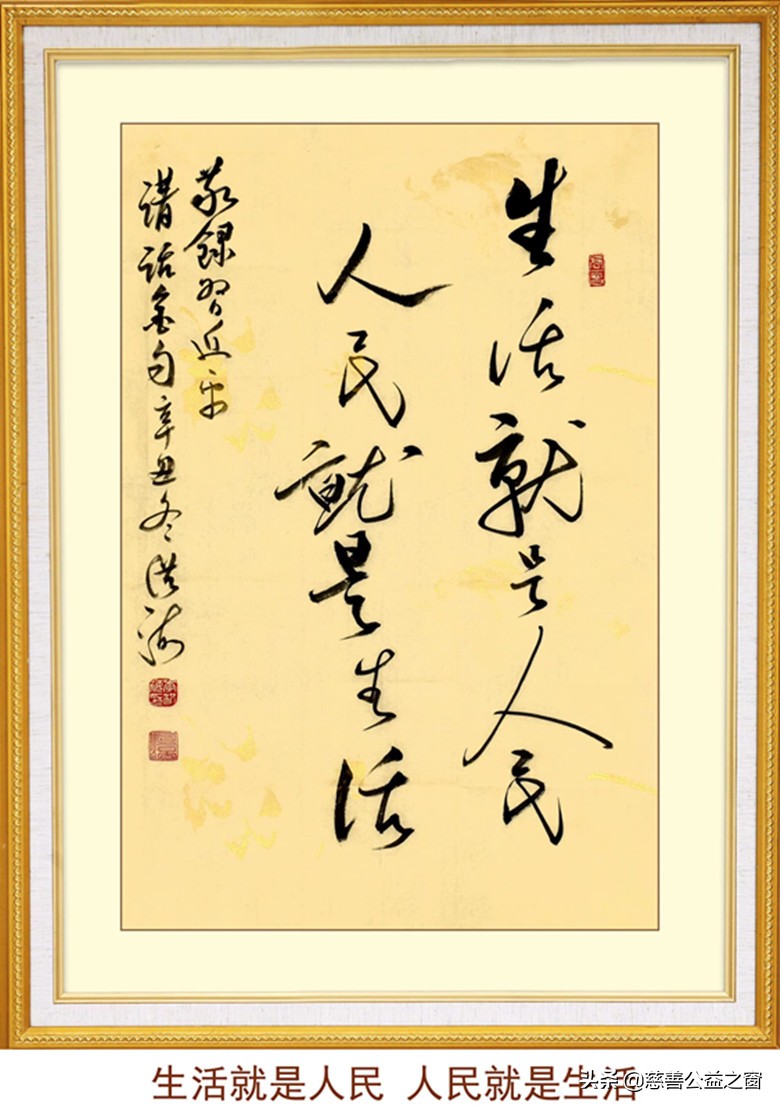 生活就是人民
人民就是生活
敬録習近平
講話金句辛丑冬洪
生活就是人民 人民就是生活
头条@慈善公益之窗